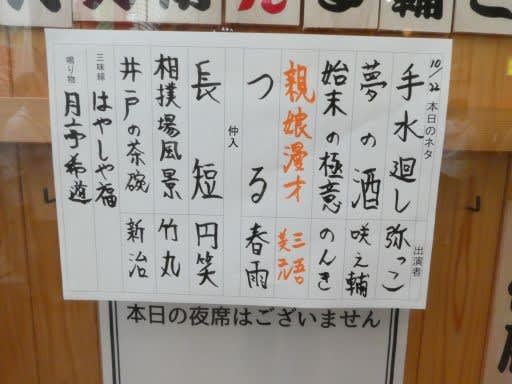 10/22 本日のネタ 出演者
手水廻し 弥っこ
夢の酒 咲之輔
始末の極意 のんき
親娘漫才 三語 美ユル
つる 春雨
仲入
長短 円笑
相撲場風景 竹丸
井戸の茶碗 新治
三味線 はやしや福
鳴り物 月亭希遊
本日の夜席はございません